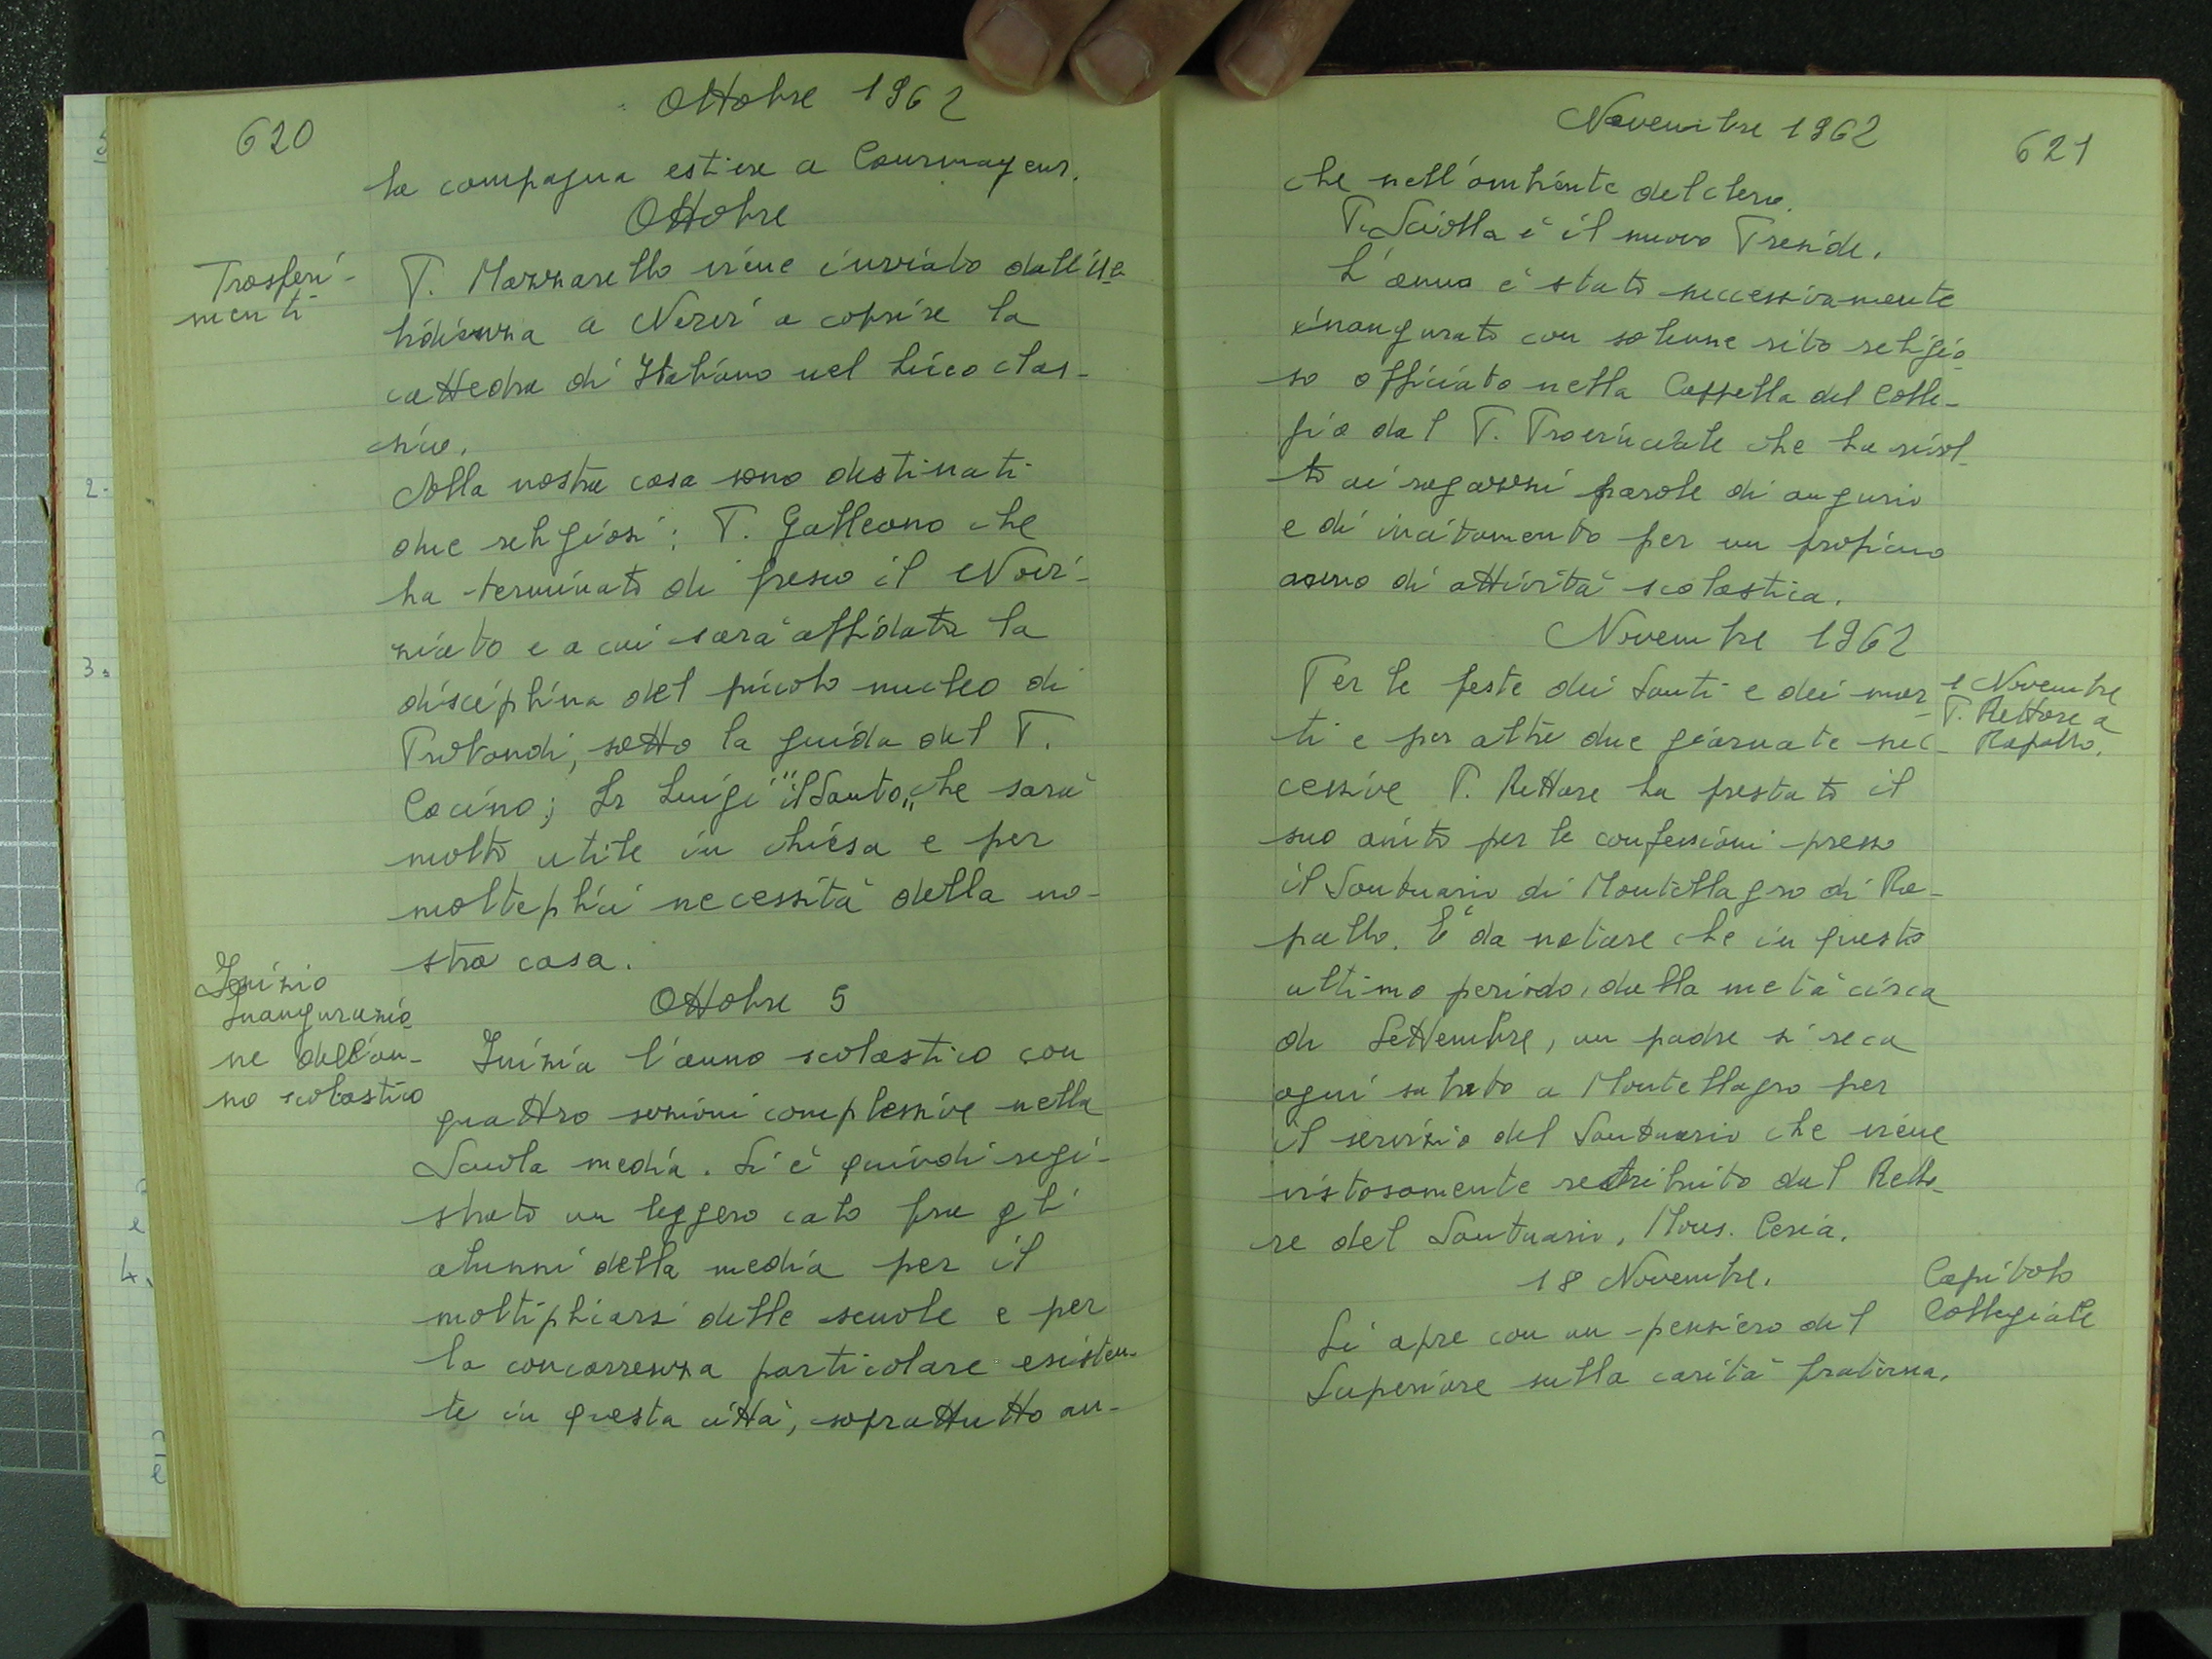 620
Ottobre 1962
la campagna estiva a Courmayeur.
Ottobre
Trasferi-
menti
P. Mazzarello viene inviato dall'Ub-
bidienza a Nervi a coprire la
cattedra di Italiano nel liceo clas-
sico.
Alla nostra casa sono destinati
due religiosi: P. Galleano che
ha terminato di fresco il Novi-
ziato e a cui sarà affidata la
disciplina del piccolo nucleo di
Probandi, sotto la guida del P.
Cocino; Fr Luigi "il Santo" che sarà
molto utile in chiesa e per
molteplici necessità della no-
stra casa.
Inizio
Inaugurazio-
ne dell'an-
no scolastico
Ottobre 5
Inizia l'anno scolastico con
quattro sezioni complessive nella
Scuola media. Si è quindi regi-
strato un leggero calo fra gli
alunni della media per il
moltiplicarsi delle scuole e per
la concorrenza particolare esisten-
te in questa città, soprattutto an-
Novembre 1962
621
che nell'ambiente del clero.
P. Sciolla è il nuovo Preside.
L'anno è stato successivamente
inaugurato con solenne rito religio-
so officiato nella Cappella del Colle-
gio dal P. Provinciale che ha rivol-
to ai ragazzi parole di augurio
e di incitamento per un proficuo
anno di attività scolastica.
Novembre 1962
Per le feste dei Santi e dei mor-
ti e per altre due giornate suc-
cessive P. Rettore ha prestato il
suo aiuto per le confessioni presso
il Santuario di Montallegro di Ra-
pallo. È da notare che in questo
ultimo periodo, dalla metà circa
di Settembre, un padre si reca
ogni sabato a Montallegro per
il servizio del Santuario che viene
vistosamente retribuito dal Retto-
re del Santuario, Mons.
1 Novembre
P. Rettore a
Rapallo.
18 Novembre.
Capitolo
Collegiale
Si apre con un pensiero del
Superiore sulla carità fraterna.